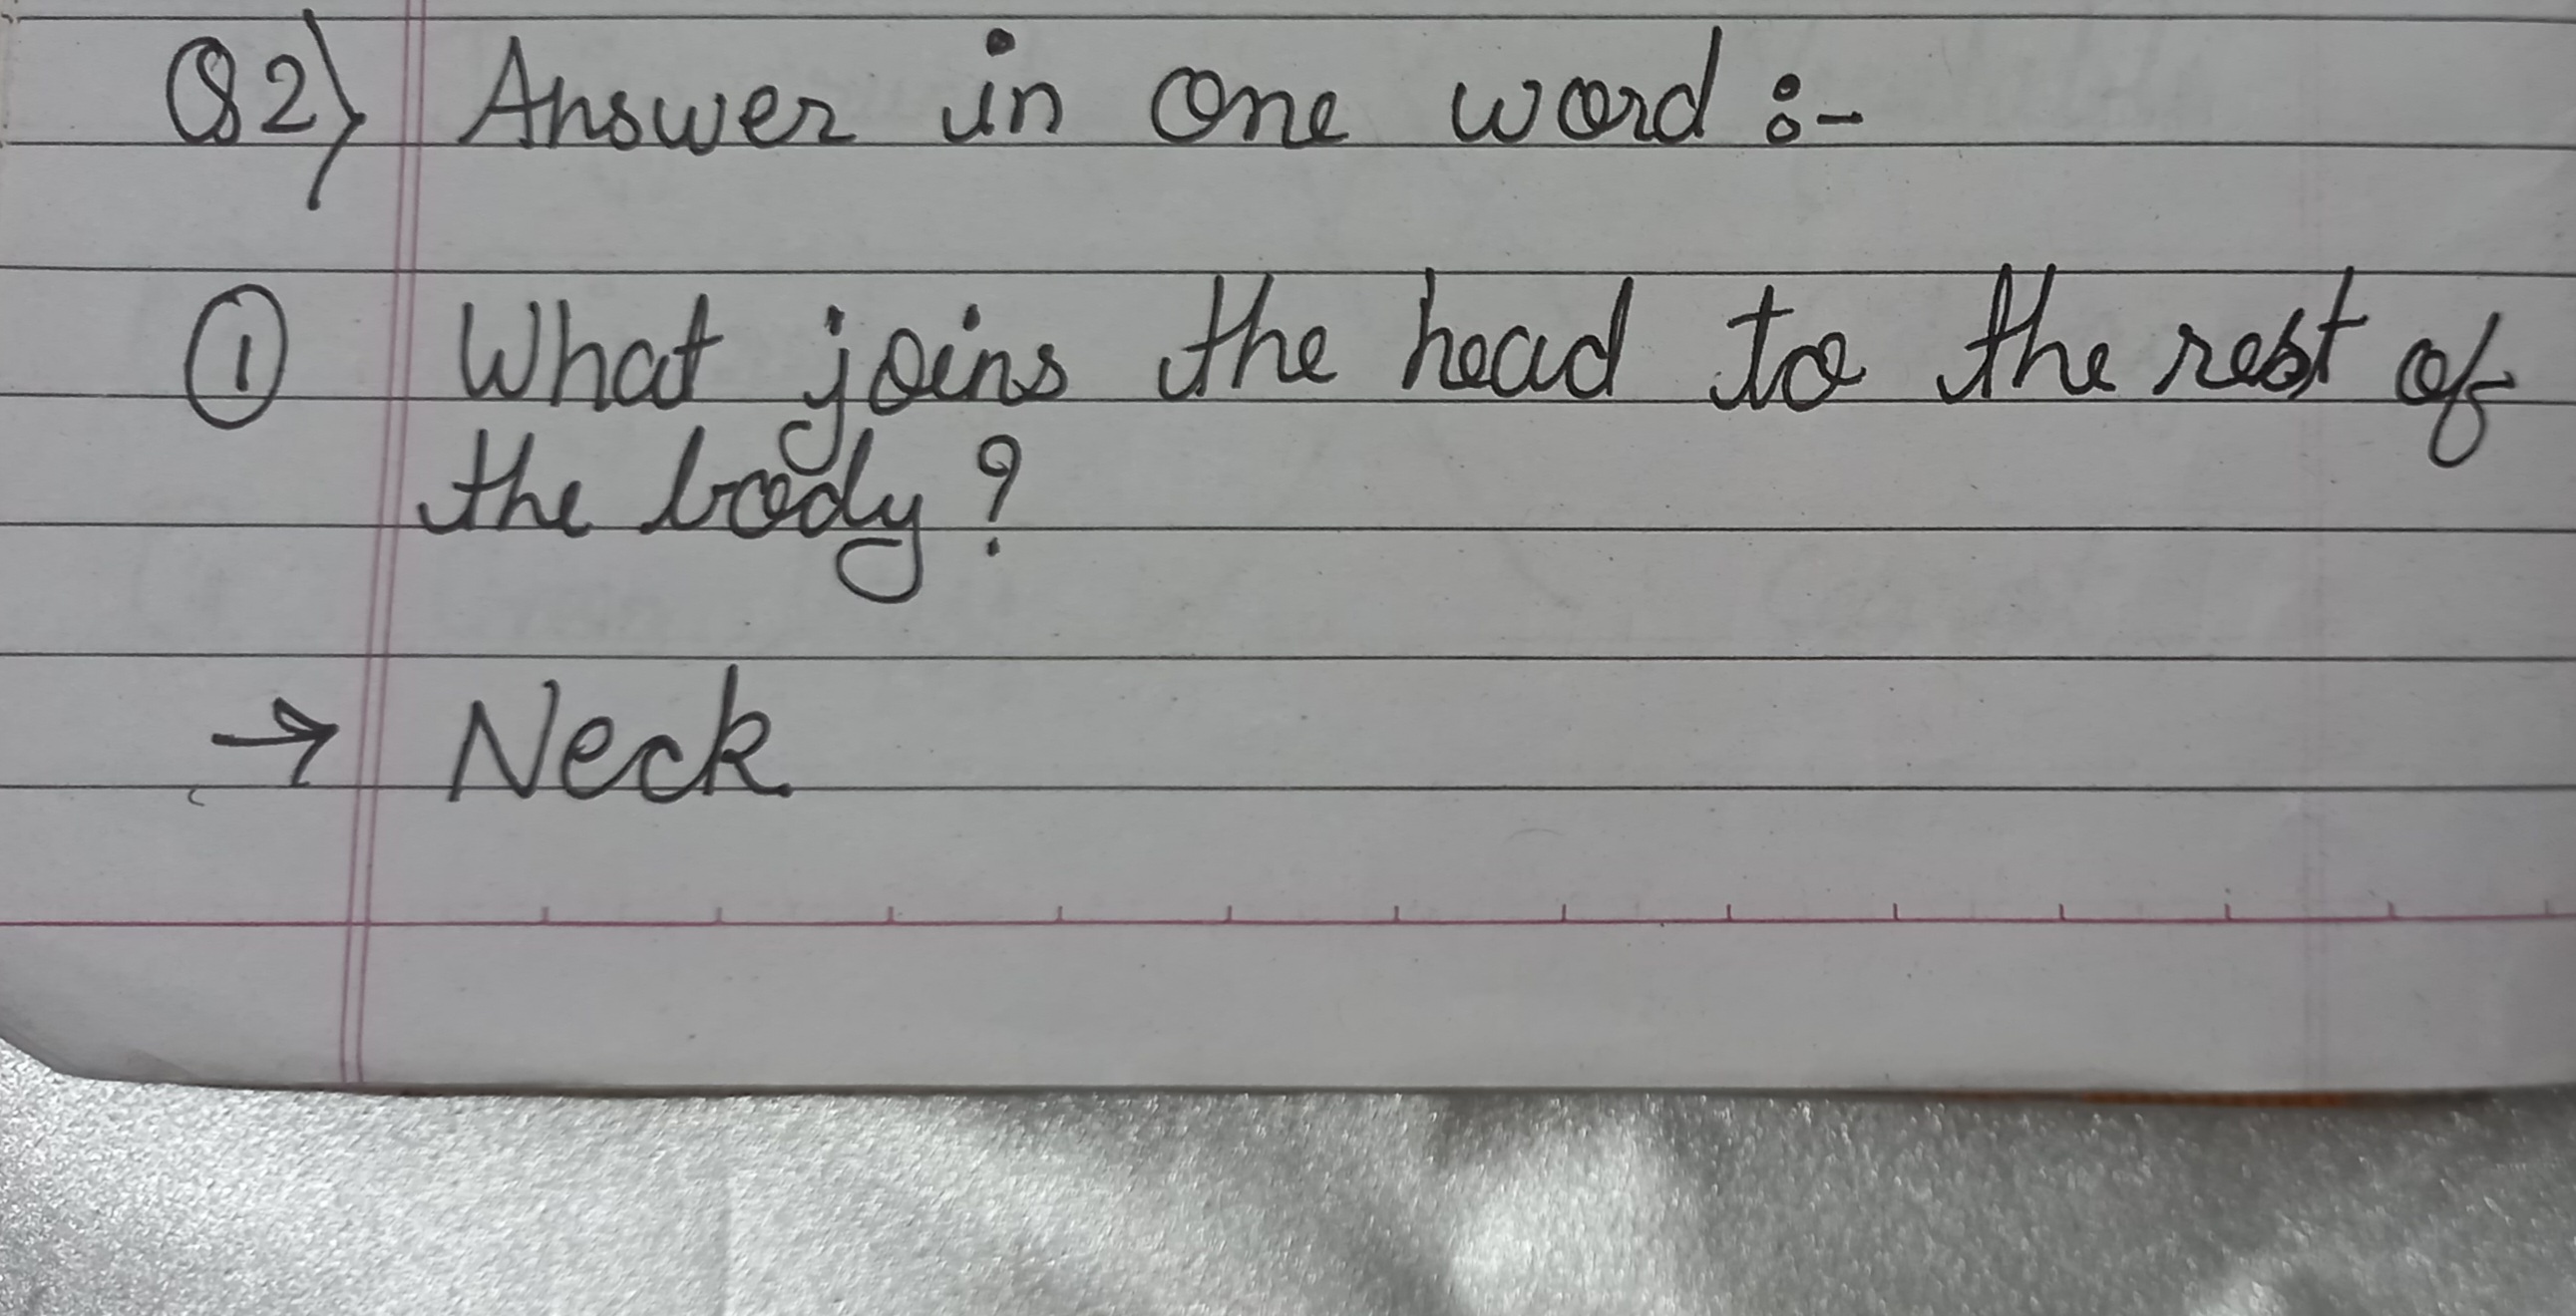 Q2) Answer in one word :-
① What joins the head to the rest of
the body ?
→ Neck.